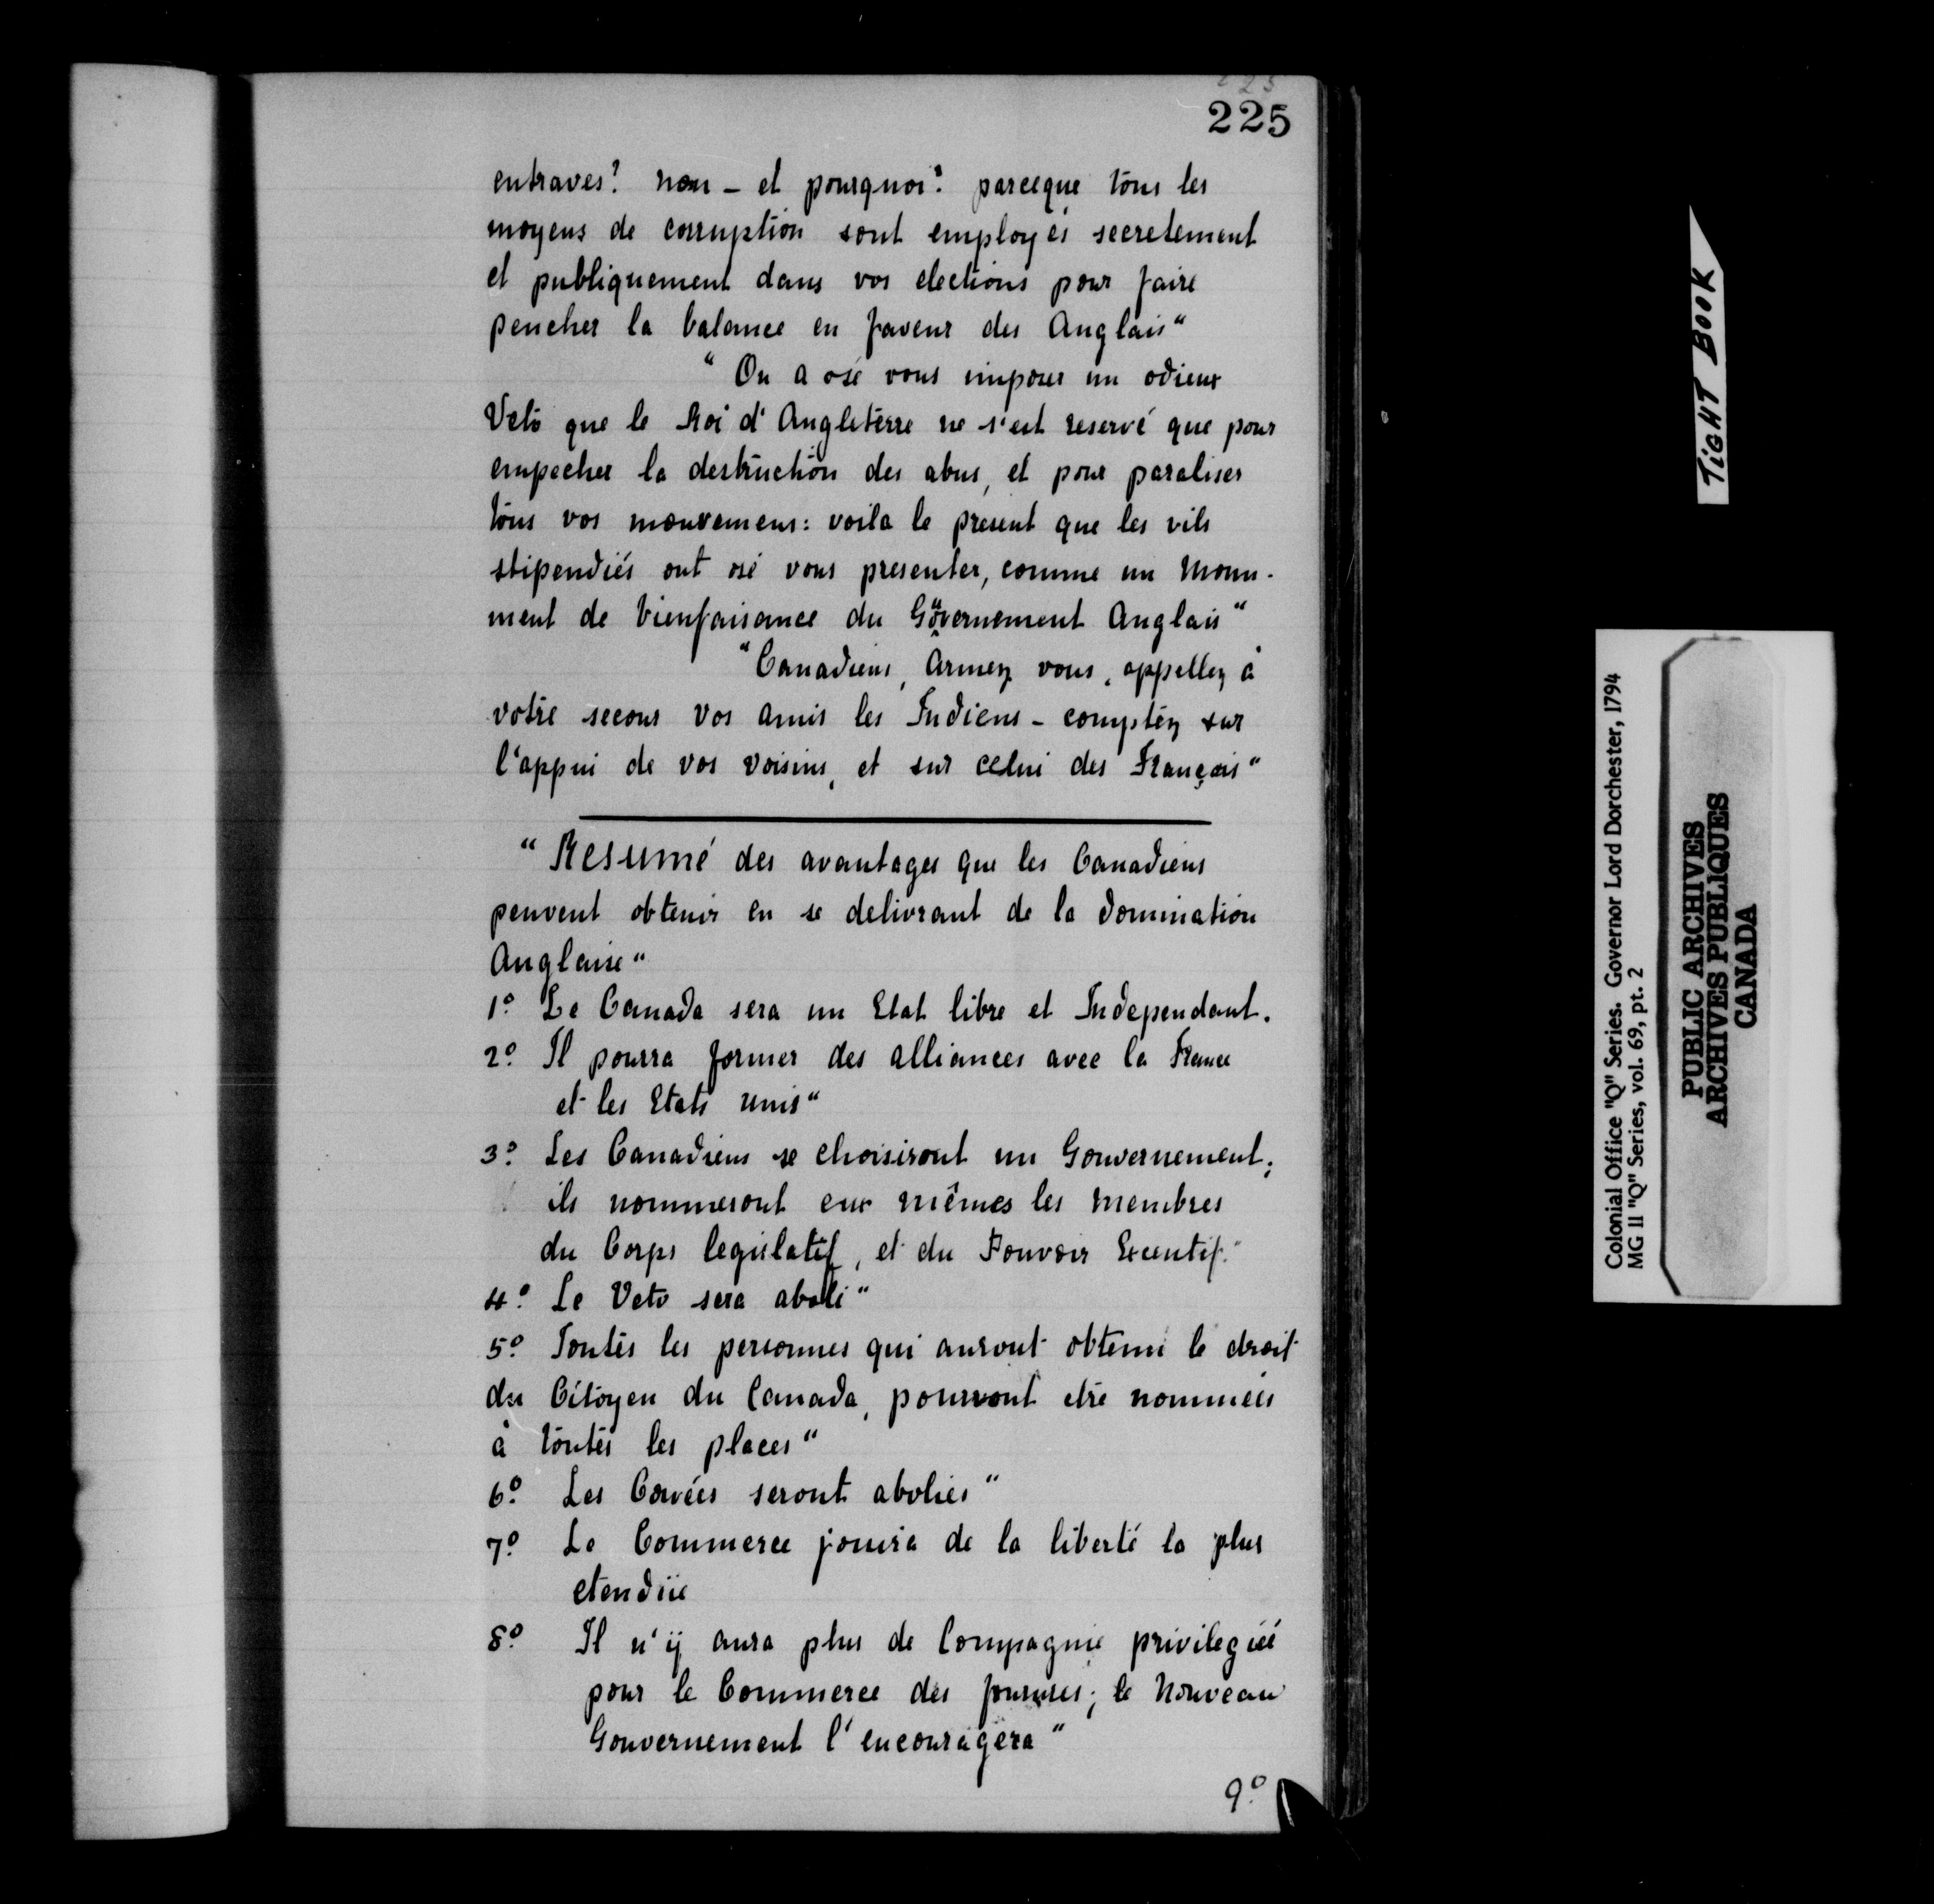 225
225
entraves? non - et pourquoi? parceque tous les
moyens de corruption sont employés secretement
et publiquement dans vos elections pour faire
pencher la balance en faveur des Anglais"
"On a osé vous imposer un odieux
Veto que le Roi d'Angleterre ne s'est reservé que pour
empecher la destruction des abus, et pour paraliser
tous vos mouvemens: voila le present que les vils
stipendiés ont osé vous presenter, comme un Monu-
ment de bienfaisance du Gouvernement Anglais"
"Canadiens, Armez vous, appellez à
votre secours vos amis les Indiens - comptez sur
l'appui de vos voisins, et sur celui des Français"
"Resumé des avantages que les Canadiens
peuvent obtenir en se delivrant de la domination
Anglaise"
1º Le Canada sera un Etat libre et Independant.
2º Il pourra former des alliances avec la France
et les Etats unis"
3º Les Canadiens se choisiront un Gouvernement;
ils nommeront eux mêmes les membres
du Corps legislatif, et du Pouvoir Executif."
4º Le Veto sera aboli"
5º Toutes les personnes qui auront obtenu le droit
du Citoyen du Canada, pourront etre nommées
à toutes les places"
6º Les Corvées seront abolies"
7º Le Commerce jouira de la liberté la plus
etendüe
8º Il n'ÿ aura plus de Compagnie privilegiéé
pour le Commerce des fourures; le Nouveau
Gouvernement l'encouragera"
9º
TIGHT BOOK
Colonial Office "Q" Series. Governor Lord Dorchester, 1794
MG 11 "Q" Series, vol. 69, pt. 2
PUBLIC ARCHIVES
ARCHIVES PUBLIQUES
CANADA